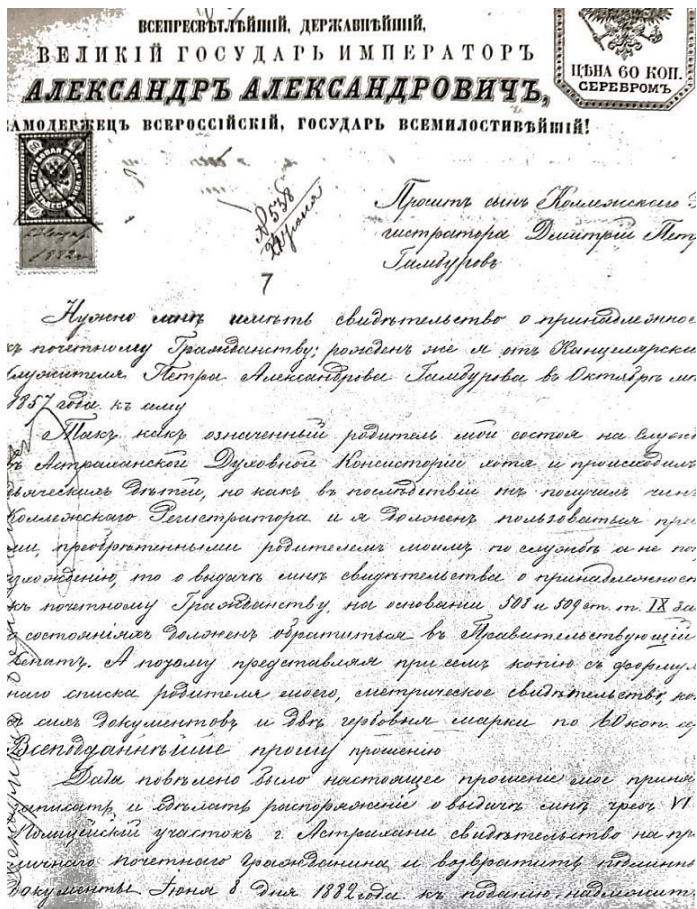 ВСЕПРЕСВѢТЛѢЙШІЙ, ДЕРЖАВНѢЙШІЙ,
ВЕЛИКІЙ ГОСУДАРЬ ИМПЕРАТОРЪ
АЛЕКСАНДРЪ АЛЕКСАНДРОВИЧЪ,
АМОДЕРЖЕЦЪ ВСЕРОССІЙСКІЙ, ГОСУДАРЬ ВСЕМИЛОСТИВѢЙШІЙ!
ЦѢНА 60 КОП.
СЕРЕБРОМЪ
60 60
1882
№ 538
7
Проситъ сынъ Коллежскаго
гистратора Дмитрій Петр
Гамбуровъ
Нужно мнѣ имѣть свидѣтельство о принадлежнос
къ почетному Гражданству; рожденъ же я отъ Канцелярска
служителя Петра Александрова Гамбурова въ Октябрѣ
1857 года къ сему
Такъ какъ означенный родитель мой состоя на служб
въ Астраханской Духовной Консисторіи хотя и происходилъ
дьяческихъ дѣтей, но какъ въ послѣдствіи онъ получилъ чинъ
Коллежскаго Регистратора и я долженъ пользоваться пра
ми, преобрѣтенными родителемъ моимъ по службѣ а не по
рожденію, то о выдачѣ мнѣ свидѣтельства о принадлежност
къ почетному Гражданству, на основаніи 508 и 509 ст. т. IX
состояніяхъ долженъ обратиться въ Правительствующій
Сенатъ. А потому представляя при семъ копію съ формул
наго списка родителя моего, метрическое свидѣтельство,
съ сихъ документовъ и двѣ гербовыя марки по 60 коп.
Всеподданнѣйше прошу прошенію
Дабы повѣлено было настоящее прошеніе мое приня
записать и сдѣлать распоряженіе о выдачѣ мнѣ чрезъ VI
Полицейскій участокъ г. Астрахани свидѣтельство на
личнаго почетнаго гражданина и возвратить подлинн
документы. Іюня 8 дня 1882 года къ поданію надлежитъ